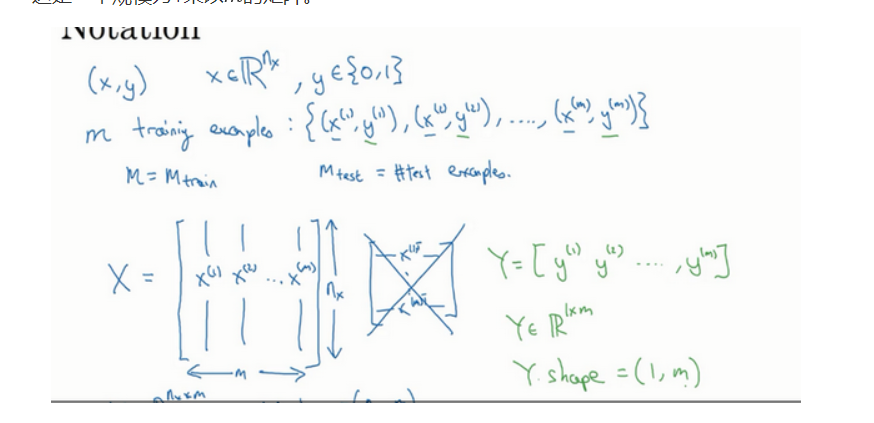 Notation
(x,y) x∈ℝ^{n_x}, y∈{0,1}
m training examples : {(x^{(1)}, y^{(1)}), (x^{(2)}, y^{(2)}), ...., (x^{(m)}, y^{(m)})}
M = M_{train} M_{test} = #test examples.
X = [x^{(1)} x^{(2)} ... x^{(m)}] n_x
m
x^{(1)T}
x^{(m)T}
Y = [y^{(1)} y^{(2)} ...., y^{(m)}]
Y∈ ℝ^{1×m}
Y.shape = (1,m)